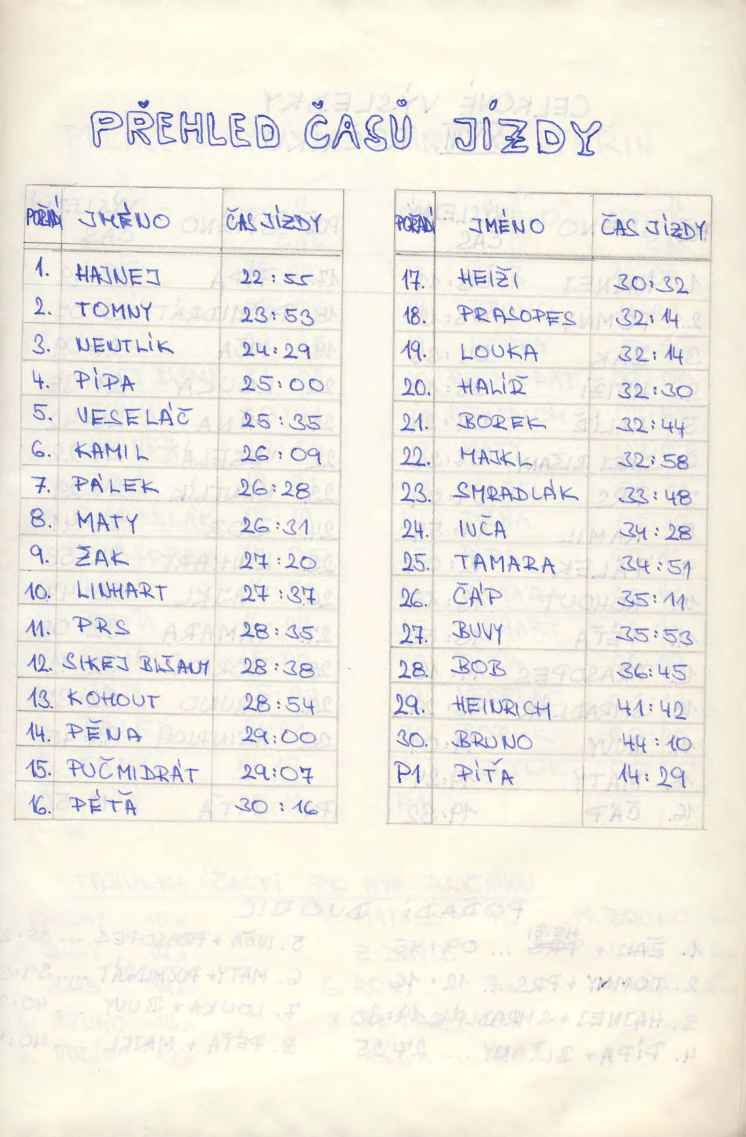 PŘEHLED ČASŮ JÍZDY
POŘADÍ JMÉNO ČAS JÍZDY
1. HAJNEJ 22:55
2. TOMNY 23:53
3. NENTLÍK 24:29
4. PÍPA 25:00
5. VESELÁČ 25:35
6. KAMIL 26:09
7. PÁLEK 26:28
8. MATY 26:31
9. ŽAK 27:20
10. LINHART 27:37
11. PRS 28:35
12. 28:38
13. KOHOUT 28:54
14. PĚNA 29:00
15. PUČMIDRÁT 29:07
16. PÉŤA 30:16
POŘADÍ JMÉNO ČAS JÍZDY
17. HEIŽI 30:32
18. PRASOPES 32:14
19. LOUKA 32:14
20. HALÍŘ 32:30
21. BOREK 32:44
22. MAJKL 32:58
23. SMRADLÁK 33:48
24. IVČA 34:28
25. TAMARA 34:51
26. ČÁP 35:11
27. BUVY 35:53
28. BOB 36:45
29. HEINRICH 41:42
30. BRUNO 44:10
P1 PÍŤA 14:29